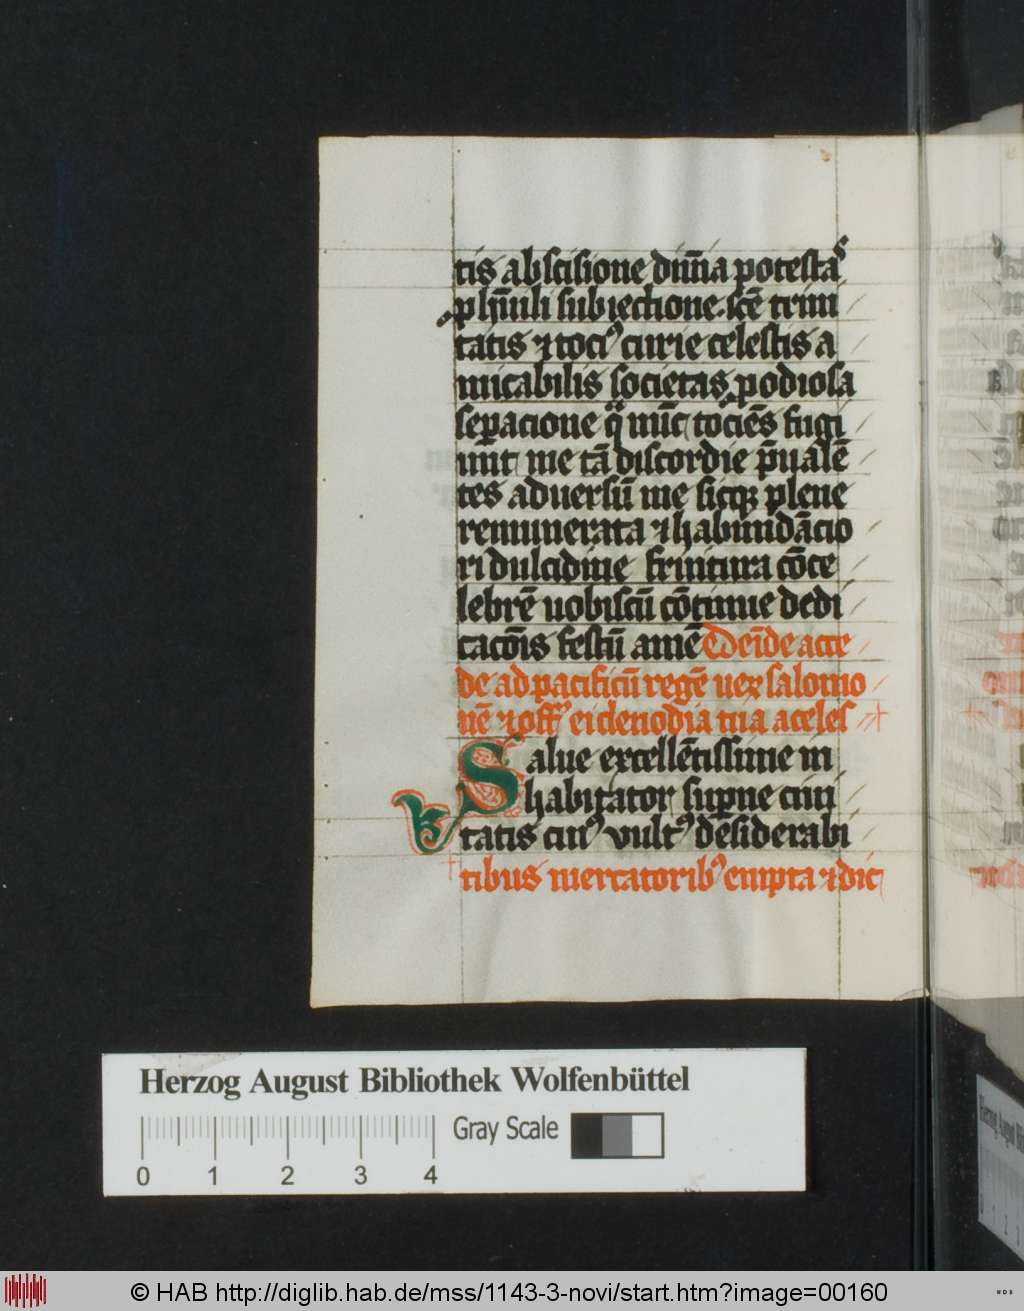 tis abscisione diuīa potestaˢ
ꝓ hūili subiectione. scē trini
tatis ⁊ tociꝰ curie celestis a
micabilis societas ꝓ odiosa
seꝑacione q̄ nūc tociēs fugi
unt me tā discordie p̄ualē
tes aduersū me sicqꝫ plene
remunerata ⁊ habundācio
ri dulcidine fruitura cōce
lebrē uobiscū cōtinue dedi
cacōis festū amē Deīde acce
de ad pacificū regē ueꝝ salomo
nē ⁊ off ei clenodia tua a celes
Salue excellētissime in
habitator suꝑne ciui
tatis cuiꝰ vultꝰ desiderabi
tibus mercatoribꝰ empta ⁊ dic
Herzog August Bibliothek Wolfenbüttel
Gray Scale
0 1 2 3 4
© HAB http://diglib.hab.de/mss/1143-3-novi/start.htm?image=00160